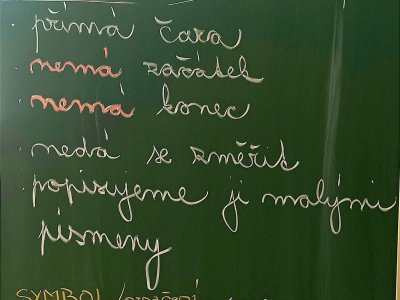 · přímá čára
· nemá začátek
· nemá konec
· nedá se změřit
· popisujeme ji malými
písmeny
SYMBOL /označení